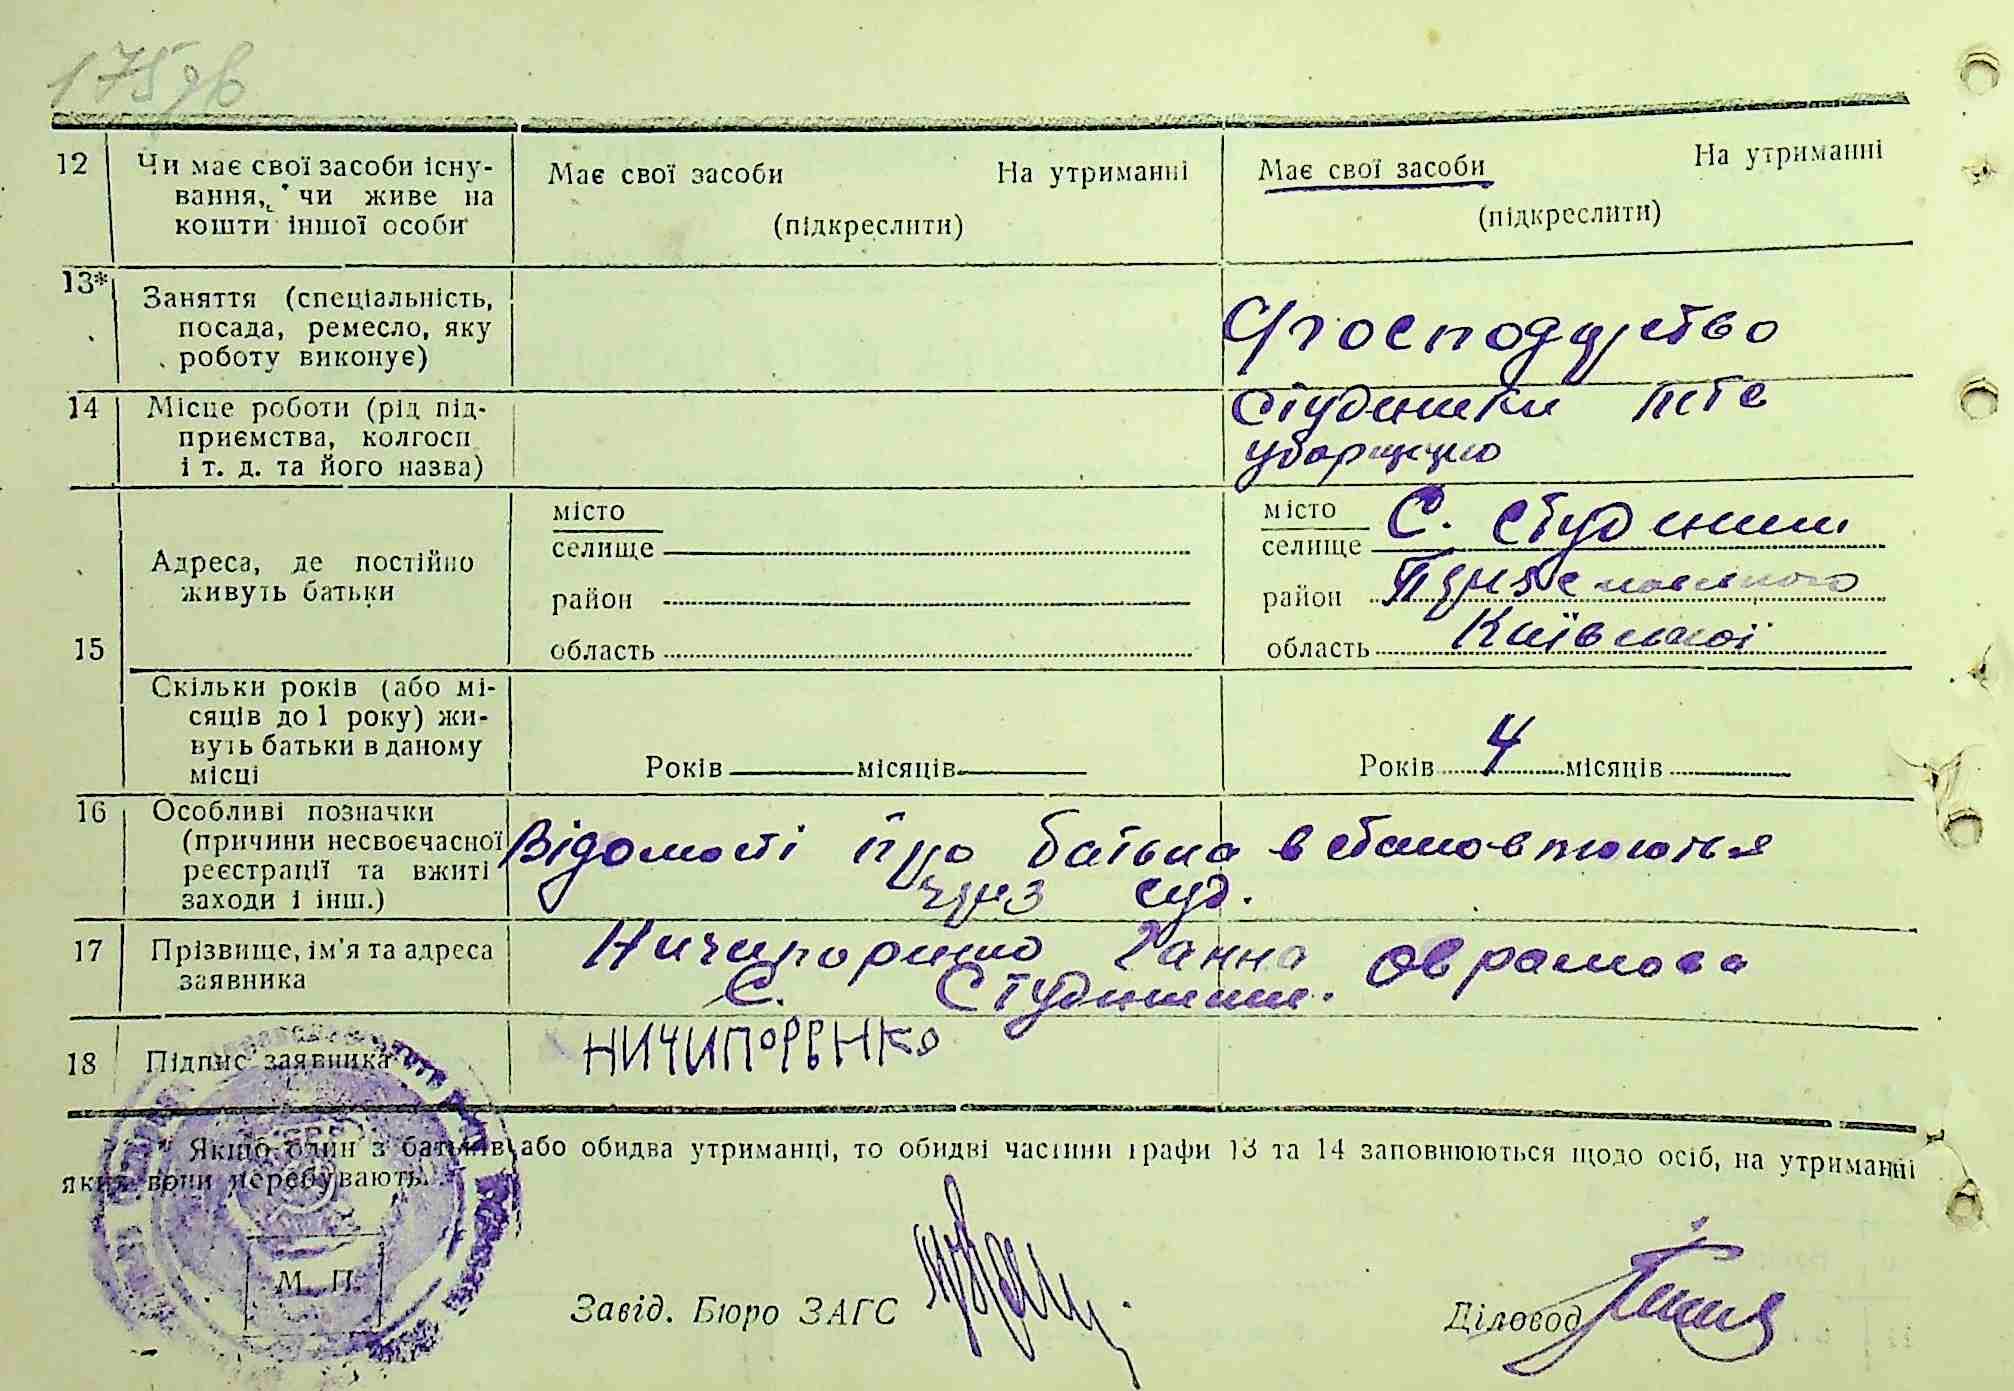 175зв
12 Чи має свої засоби існу-
вання, чи живе на
кошти іншої особи
Має свої засоби На утриманні
(підкреслити)
Має свої засоби На утриманні
(підкреслити)
13* Заняття (спеціальність,
посада, ремесло, яку
роботу виконує)
господарство
14 Місце роботи (рід під-
приємства, колгосп
і т. д. та його назва)
Студеники
уборщицею
15 Адреса, де постійно
живуть батьки
місто
селище
район
область
місто
селище С. Студеники
район
область Київської
Скільки років (або мі-
сяців до 1 року) жи-
вуть батьки в даному
місці
Років місяців
Років 4 місяців
16 Особливі позначки
(причини несвоєчасної
реєстрації та вжиті
заходи і інш.)
Відомості про батька встановлюються
через суд.
17 Прізвище, ім'я та адреса
заявника
Ничипоренко Ганна Оврамова
С. Студеники.
18 Підпис заявника
НИЧИПОРЕНКО
* Якщо один з батьків або обидва утриманці, то обидві частини графи 13 та 14 заповнюються щодо осіб, на утриманні
яких вони перебувають.
М. П.
Завід. Бюро ЗАГС
Діловод